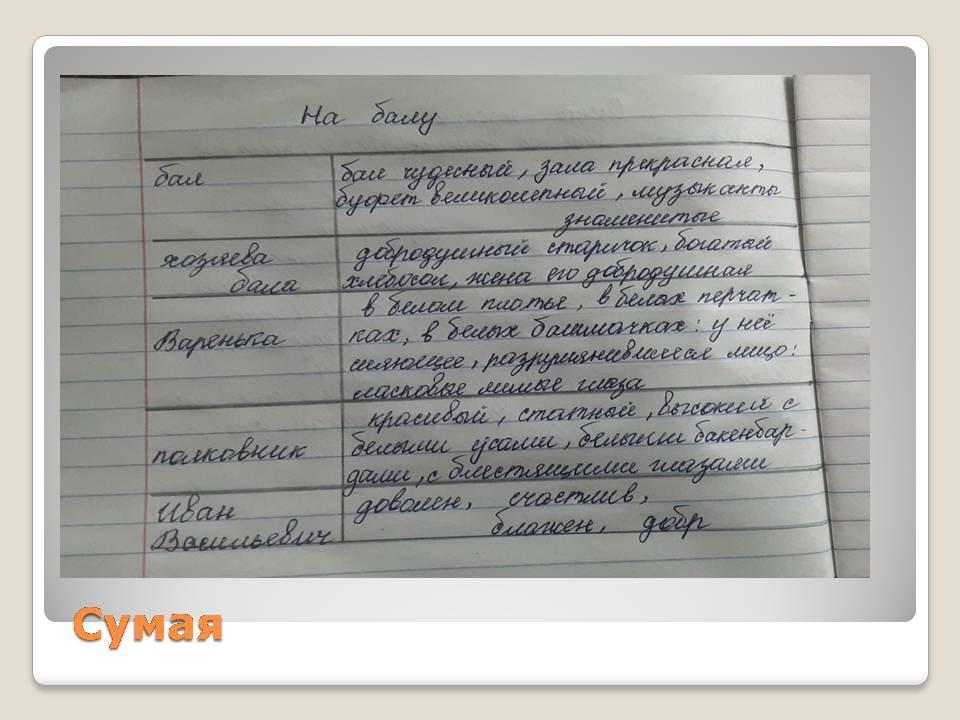 На балу
бал
бал чудесный, зала прекрасная,
буфет великолепный, музыканты
знаменитые
хозяева
бала
добродушный старичок, богатый
хлебосол, жена его добродушная
Варенька
в белом платье, в белых перчат-
ках, в белых башмачках: у неё
сияющее, разрумянившееся лицо:
ласковые милые глаза
полковник
красивый, статный, высокий с
белыми усами, белыми бакенбар-
дами, с блестящими глазами
Иван
Васильевич
доволен, счастлив,
блажен, добр
Сумая